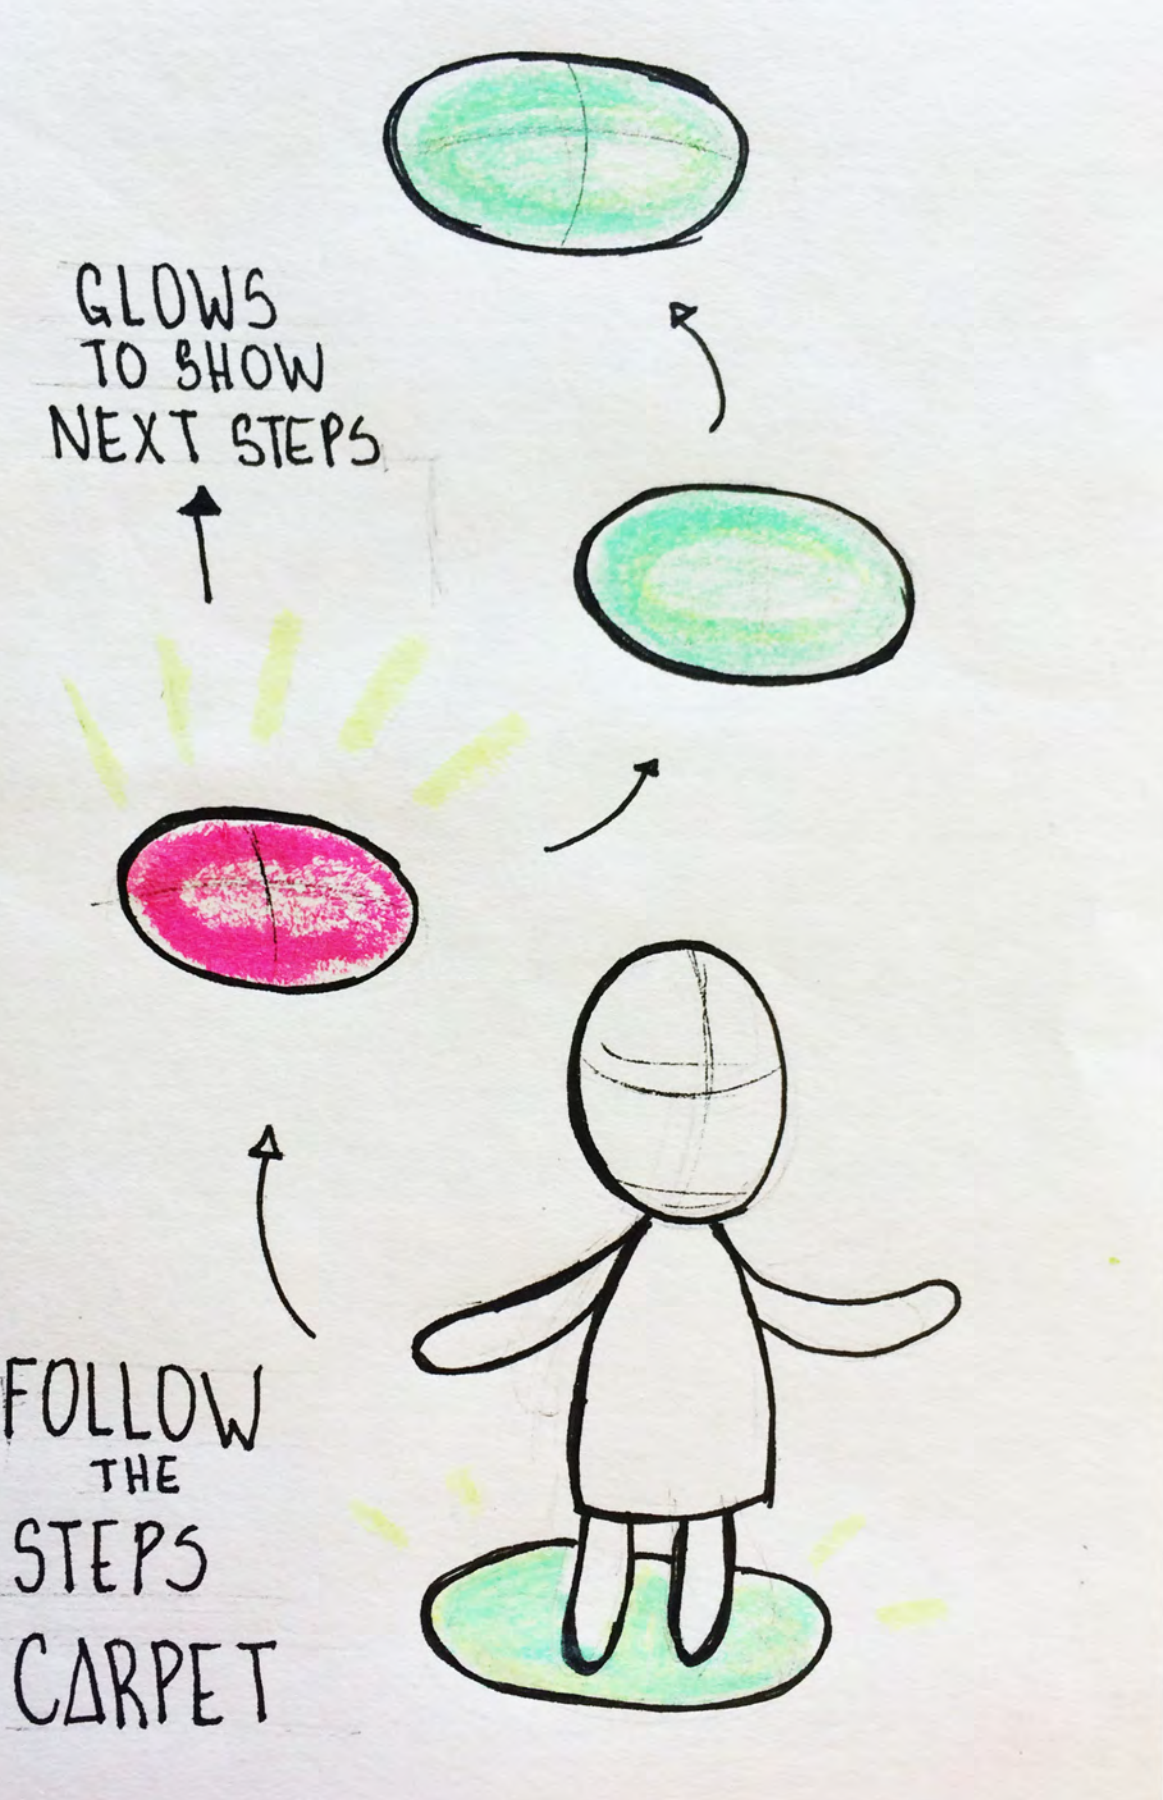 GLOWS
TO SHOW
NEXT STEPS
FOLLOW
THE
STEPS
CARPET